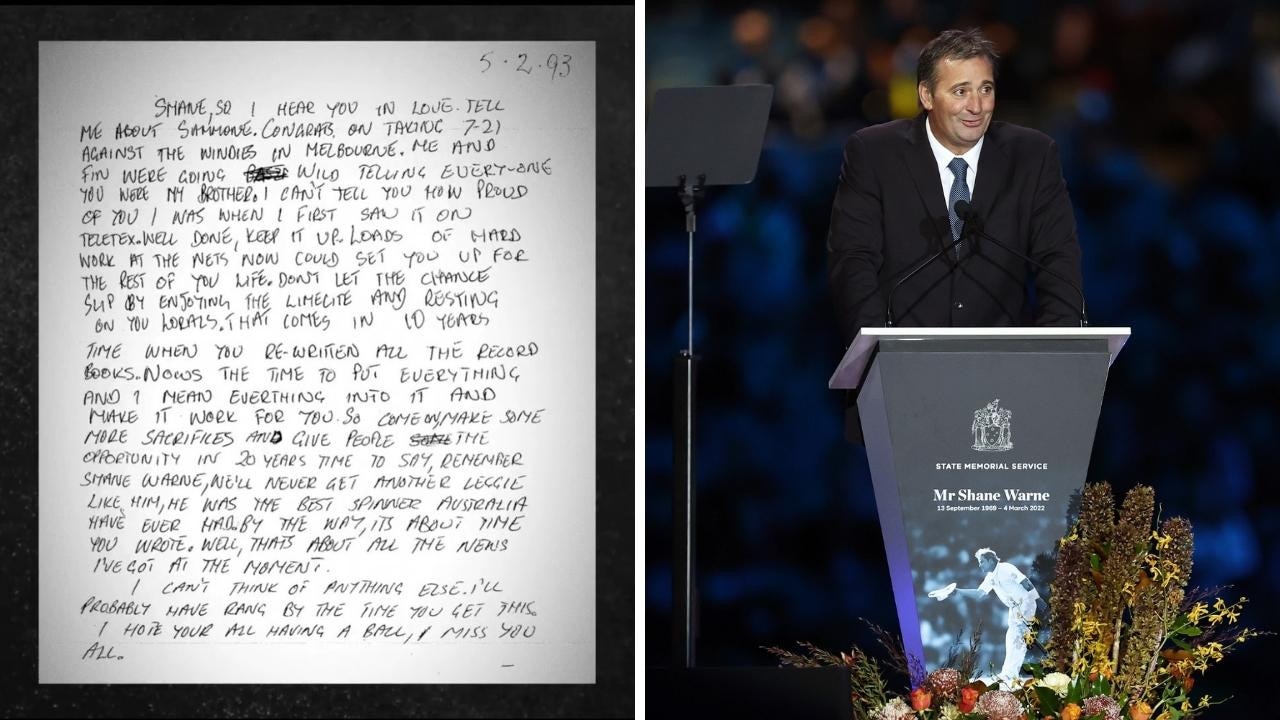 5·2·93
SHANE, SO I HEAR YOU IN LOVE. TELL
ME ABOUT SAMMONE. CONGRATS, ON TAKING 7-21
AGAINST THE WINDIES IN MELBOURNE. ME AND
FIN WERE GOING WILD TELLING EVERY-ONE
YOU WERE MY BROTHER. I CAN'T TELL YOU HOW PROUD
OF YOU I WAS WHEN I FIRST SAW IT ON
TELETEX. WELL DONE, KEEP IT UP. LOADS OF HARD
WORK AT THE NETS NOW COULD SET YOU UP FOR
THE REST OF YOU LIFE. DON'T LET THE CHANCE
SLIP BY ENJOYING THE LIMELITE AND RESTING
ON YOU LORALS. THAT COMES IN 10 YEARS
TIME WHEN YOU RE-WRITTEN ALL THE RECORD
BOOKS. NOWS THE TIME TO PUT EVERYTHING
AND I MEAN EVERTHING INTO IT AND
MAKE IT WORK FOR YOU. SO COME ON, MAKE SOME
MORE SACRIFICES AND GIVE PEOPLE THE
OPPORTUNITY IN 20 YEARS TIME TO SAY, REMEMBER
SHANE WARNE, WE'LL NEVER GET ANOTHER LEGGIE
LIKE HIM, HE WAS THE BEST SPINNER AUSTRALIA
HAVE EVER HAD. BY THE WAY, ITS ABOUT TIME
YOU WROTE. WELL, THATS ABOUT ALL THE NEWS
I'VE GOT AT THE MOMENT.
I CAN'T THINK OF ANYTHING ELSE. I'LL
PROBABLY HAVE RANG BY THE TIME YOU GET THIS.
I HOPE YOUR ALL HAVING A BALL, I MISS YOU
ALL.
STATE MEMORIAL SERVICE
Mr Shane Warne
13 September 1969 – 4 March 2022